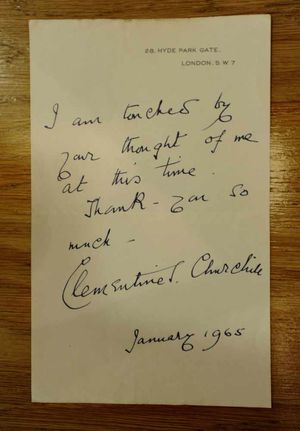 28, HYDE PARK GATE,
LONDON, S W 7
I am touched by
your thought of me
at this time.
Thank - you so
much -
Clementine S. Churchill
January 1965